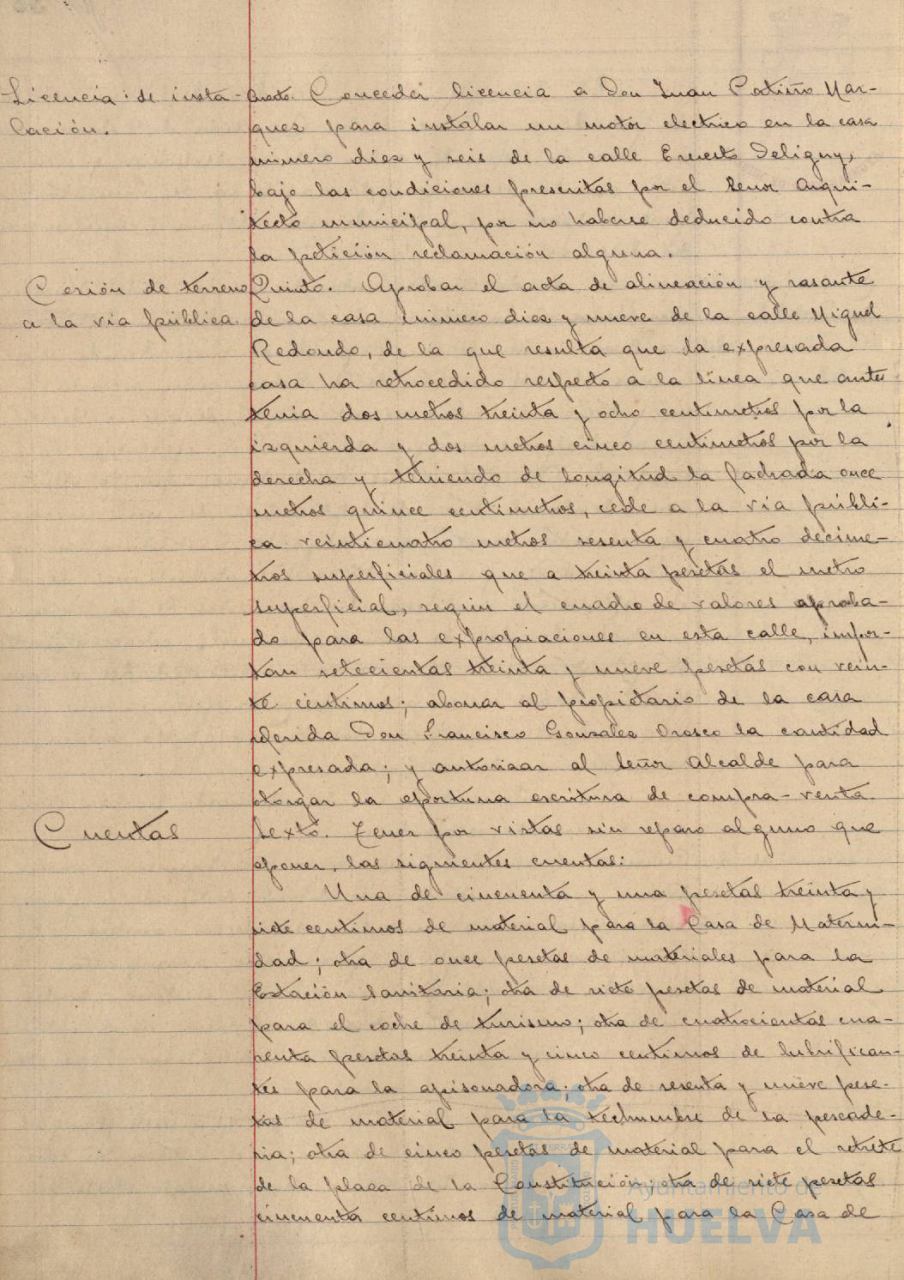 Licencia de insta-
lación.
Cuarto. Conceder licencia a Don Juan Patiño Mar-
quez para instalar un motor electrico en la casa
número diez y seis de la calle Ernesto Deligny,
bajo las condiciones prescritas por el Señor Arqui-
tecto municipal, por no haberse deducido contra
la petición reclamación alguna.
Cesión de terreno
a la via pública.
Quinto. Aprobar el acta de alineación y rasante
de la casa número diez y nueve de la calle Miguel
Redondo, de la que resulta que la expresada
casa ha retrocedido respecto a la línea que antes
tenia dos metros treinta y ocho centimetros por la
izquierda y dos metros cinco centimetros por la
derecha y teniendo de longitud la fachada once
metros quince centimetros, cede a la via públi-
ca veinticuatro metros sesenta y cuatro decime-
tros superficiales que a treinta pesetas el metro
superficial, según el cuadro de valores aproba-
do para las expropiaciones en esta calle, impor-
tan setecientas treinta y nueve pesetas con vein-
te céntimos; abonar al propietario de la casa
referida Don Francisco Gonzalez Orosco la cantidad
expresada; y autorizar al Señor Alcalde para
otorgar la oportuna escritura de compra-venta.
Cuentas
Sexto. Tener por vistas sin reparo alguno que
oponer, las siguientes cuentas:
Una de cincuenta y una pesetas treinta y
siete centimos de material para la Casa de Materni-
dad; otra de once pesetas de materiales para la
Estación Sanitaria; otra de siete pesetas de material
para el coche de turismo; otra de cuatrocientas cua-
renta pesetas treinta y cinco centimos de lubrifican-
tes para la apisonadora; otra de sesenta y nueve pese-
tas de material para la techumbre de la pescade-
ria; otra de cinco pesetas de material para el retrete
de la plaza de la Constitución; otra de siete pesetas
cincuenta centimos de material para la Casa de
Ayuntamiento de
HUELVA